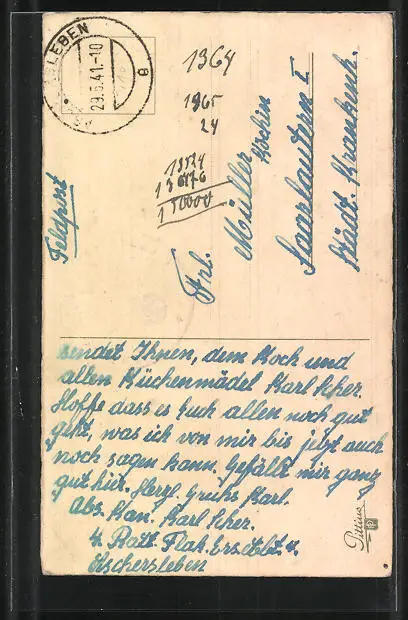 LEBEN
29.5.41.-10
a
1364
1965
24
13574
136176
150000
Feldpost
Frl.
Müller Köchin
Saarlautern I
Städt. Krankenh.
sendet Ihnen, dem Koch und
allen Küchenmädel Karl Scher.
Hoffe dass es Euch allen noch gut
geht, was ich von mir bis jetzt auch
noch sagen kann. Gefällt mir ganz
gut hier. Herzl. Grüße Karl.
Abs. Kan. Karl Scher.
4. Batt. Flak. Ers.
Aschersleben
Pittius